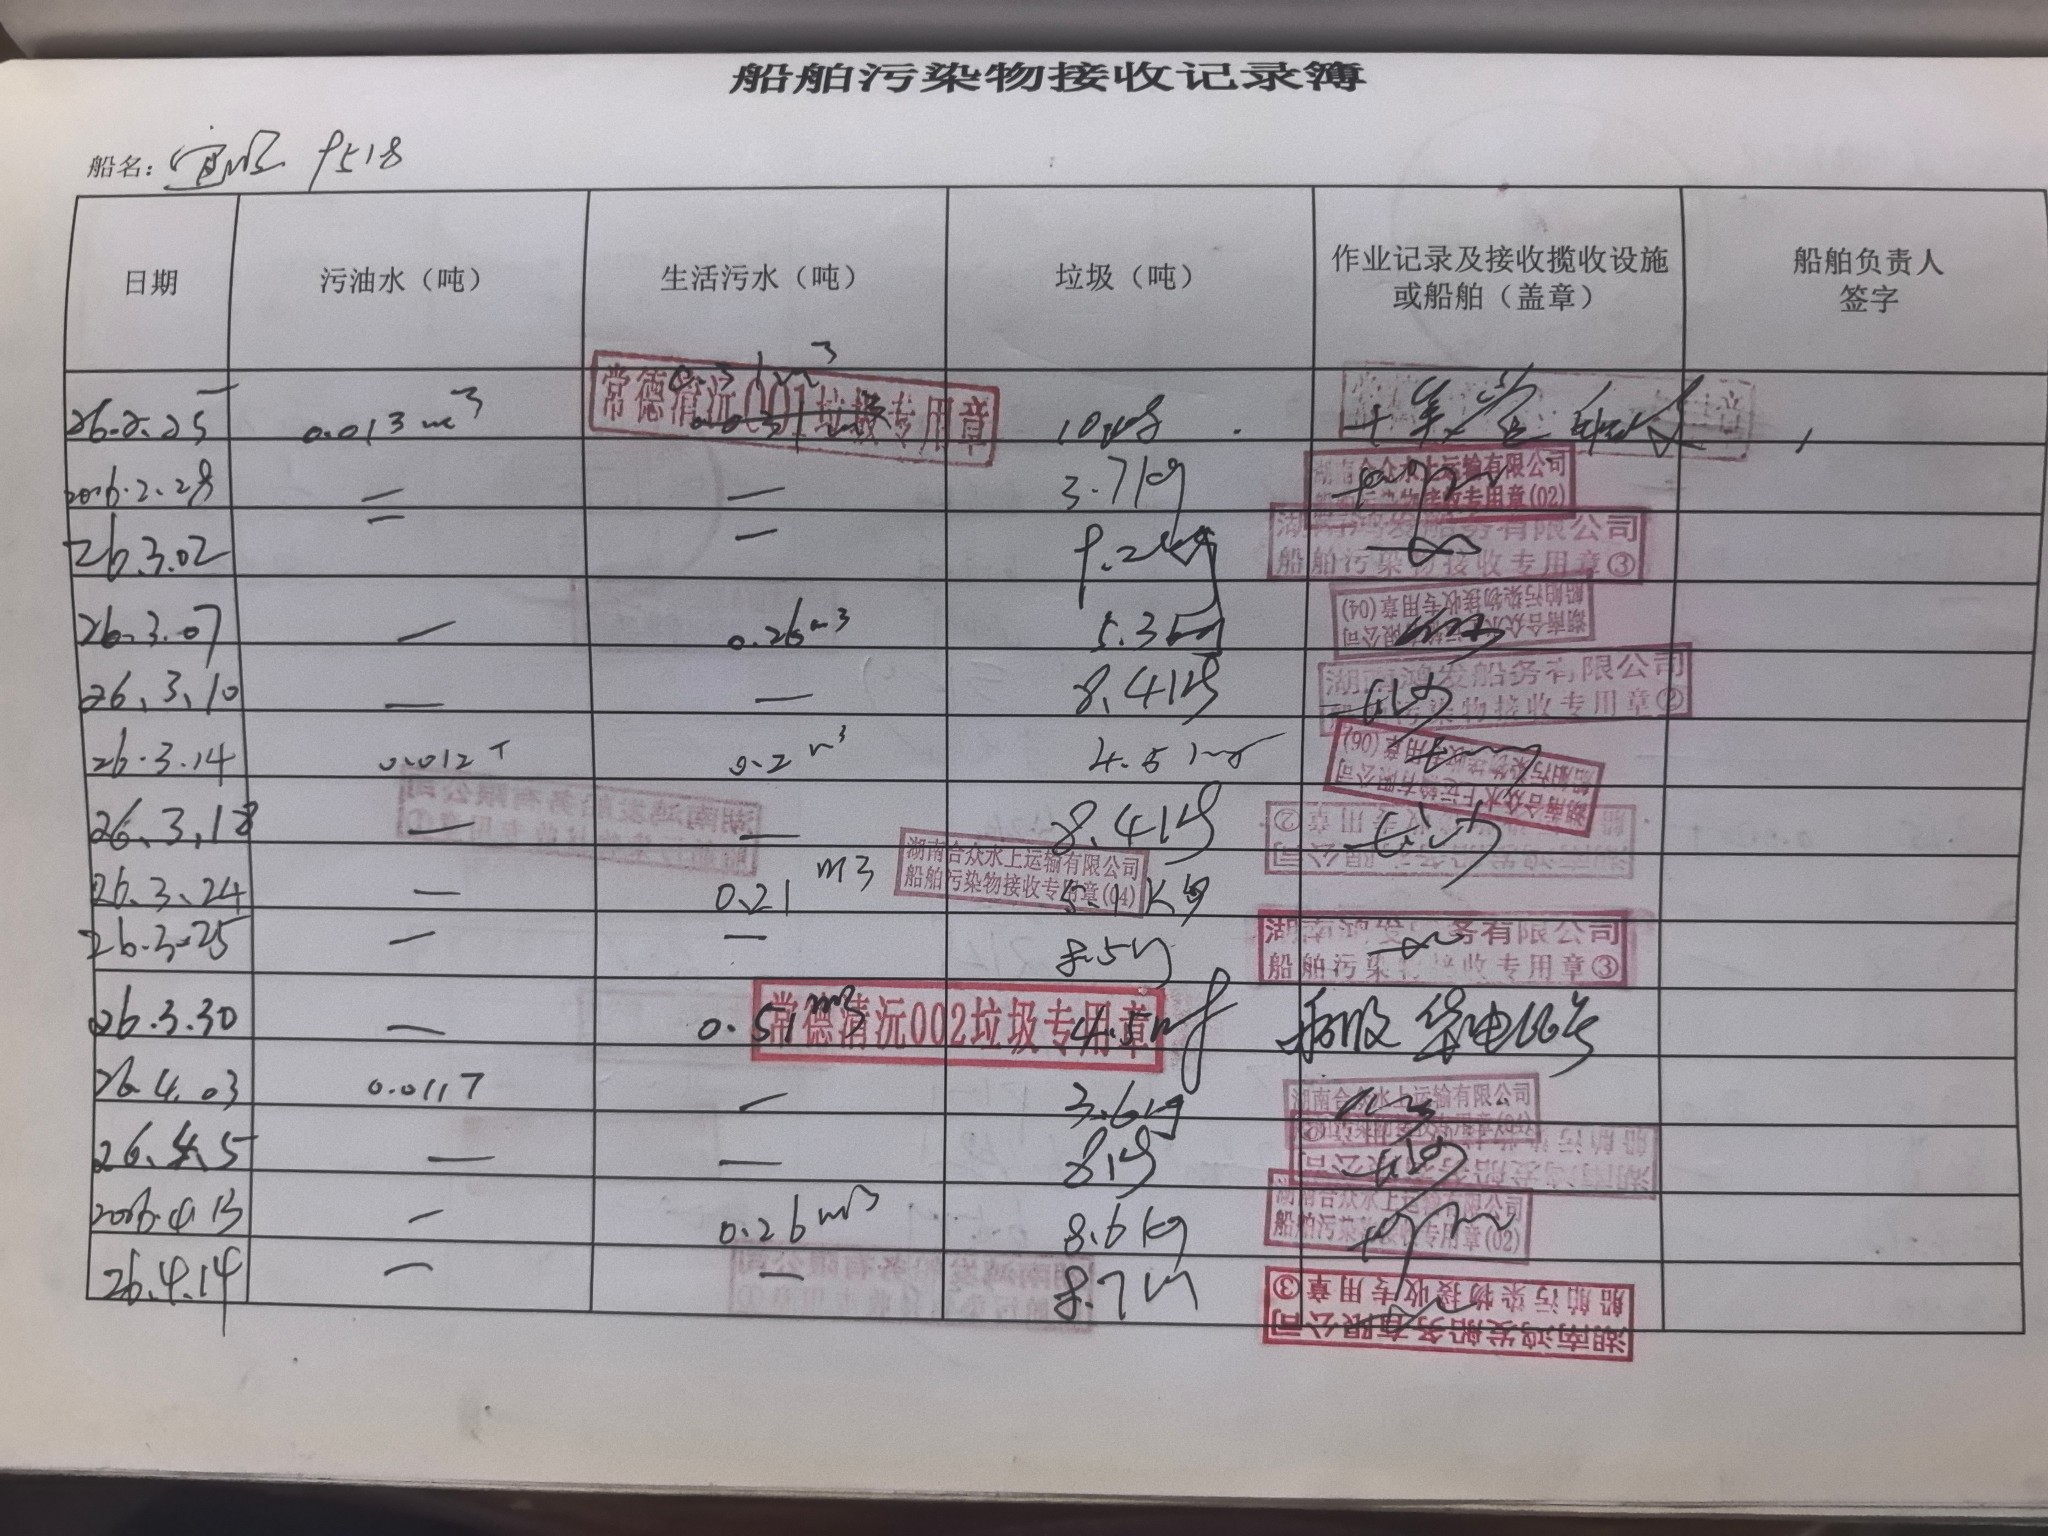 船舶污染物接收记录簿
船名：宜顺 9518
日期 污油水（吨） 生活污水（吨） 垃圾（吨） 作业记录及接收揽收设施或船舶（盖章） 船舶负责人签字
26.2.25 0.013m³ 0.31m³ 10kg
常德清沅001垃圾专用章
2026.2.28 — — 3.7kg
湖南合众水上运输有限公司
船舶污染物接收专用章(02)
26.3.02 — — 9.2kg
湖南鸿发船务有限公司
船舶污染物接收专用章③
26.3.07 — 0.26m³ 5.3kg
湖南合众水上运输有限公司
船舶污染物接收专用章(04)
26.3.10 — — 8.4kg
湖南鸿发船务有限公司
船舶污染物接收专用章②
26.3.14 0.012T 0.2m³ 4.5kg
湖南合众水上运输有限公司
船舶污染物接收专用章(06)
26.3.18 — — 8.4kg
湖南鸿发船务有限公司
船舶污染物接收专用章②
26.3.24 — 0.21m3 5.1kg
湖南合众水上运输有限公司
船舶污染物接收专用章(04)
26.3.25 — — 8.5kg
湖南鸿发船务有限公司
船舶污染物接收专用章③
26.3.30 — 0.51m3 4.5kg
常德清沅002垃圾专用章
26.4.03 0.011T — 3.6kg
湖南合众水上运输有限公司
26.4.5 — — 8kg
湖南鸿发船务有限公司
2026.4.13 — 0.26m³ 8.6kg
湖南合众水上运输有限公司
船舶污染物接收专用章(02)
26.4.14 — — 8.7kg
湖南鸿发船务有限公司
船舶污染物接收专用章③